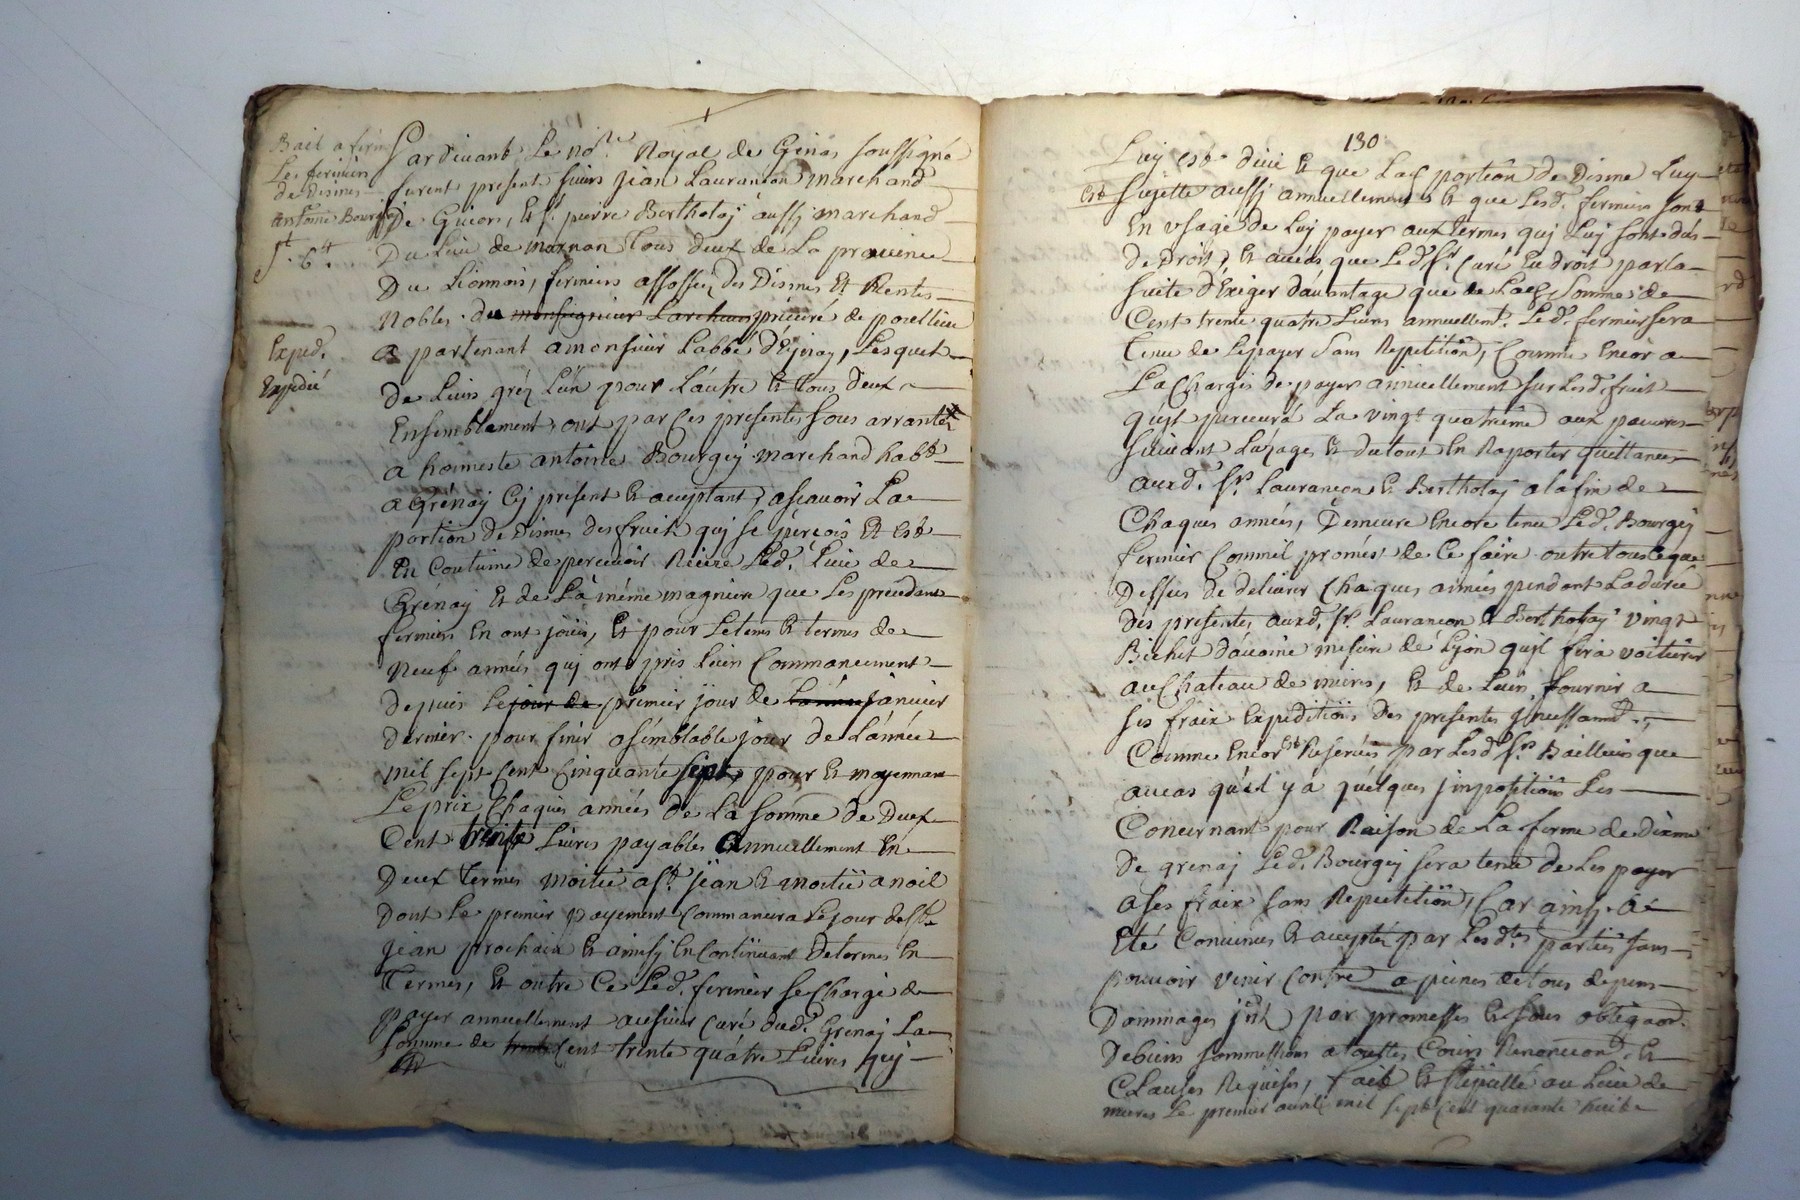 Bail a ferm
Les fermiers
de Dismes
antoine Bourgey
Exped.
Expedié
Pardevant Le no.re Royal de Genas soussigné
furent present sieurs jean Laurancon marchand
De Givors, Et s.r pierre Bertholaÿ aussÿ marchand
Du Lieu de mornan Tous deux de La province
Du Lionnois, fermiers assossiez des Dismes Et Rentes
Nobles du monseigneur Larcheves prieuré de poellieu
a partenant a monsieur Labbé d'Éjnay, Lesquels
De Leurs gréz L'ün pour L'autre Et Tous deux
Ensemblement, ont par Ces presentes sous arrantéz
a honneste antoine Bourgeÿ marchand habt.
a Grénaÿ Cÿ present Et acceptant, ascavoir La
portion de Dismes des fruit quÿ se pérçois Et Est
En Coutume de percevoir Riére Led. Lieu de
Grénaÿ Et de La méme magniére que Les precedans
fermiers En ont joüis, Et pour Letems Et termes de
Neuf années quÿ ont pris Leur Commancement
Depuis Le jour de premier jour de janvier
dernier pour finir asémblable jour de L'année
mil sept Cent Cinquante sept, pour Et moyennant
Le prix Chaques années de La somme de Deux
Cent trente Livres payables Annuellement En
Deux termes moitié a st. jean Et moitié a noël
Dont Le premier payement Commancera Le jour de st.
jean prochain Et ainsÿ En Continuant De termes En
Termes, Et outre Ce Led. fermier se Charge de
payer annuellement au sieur Curé dud. Grénaÿ La
somme de trente Cent trente quàtre Livres qeÿ
130
Luÿ Est deüe Et que Lad. portion de Disme Luy
Est sujette aussÿ annuellement Et que Lesd. fermiers sont
En usage de Luy payer aux termes quÿ Luy sont düs
de Droit, Et aucas que Led. s.r Curé Eu droit parla
suite d'Éxiger dàvantage que de Lad. somme de
Cent trente quatre Livres annuellemt. Led. fermier sera
Tenu de Le payer sans Repetition, Comme Encor a
La Charges de payer annuellement sur Lesd. fruit
quÿl percevrá La vingt quatriême aux pauvres
suivant Luzage, Et du tout En Raporter quittances
auxd. s.rs Laurancon Et Bertholaÿ a la fin de
Chaques années, Demeure Encore tenu Led. Bourgeÿ
fermier Comm'il promét de Ce faire outre tous Ceque
Dessus de delivrer Chaques années pendant Laduré
Des presentes auxd. s.rs Laurancon Et Bertholaÿ vingt
Bichet dàvoine mesure dé Lÿon quÿl fera voiturer
au Chateau de mures, Et de Leur fournir a
ses fraix Expedition Des presentes
Comme Encor Est Reservés par Lesd. s.rs Bailleurs que
aucas qu'il y à quélques jmposition Les
Concernant pour Raison de La ferme de dixme
De grenaÿ Led. Bourgeÿ sera tenu de Les payer
a ses fraix sans Repetition, Car ainsÿ a
Eté Convenus Et accepté par Lesd.tes parties sans
pouvoir venir Contre a peines de tous depens
Dommages jnt. par promesses Et sous obligaon.
De biens soummissions a touttes Cours Renonceon. Et
Clauses Requises, fait Et stipullé au Lieu de
mures Le premier avril mil sept Cent quarante huit